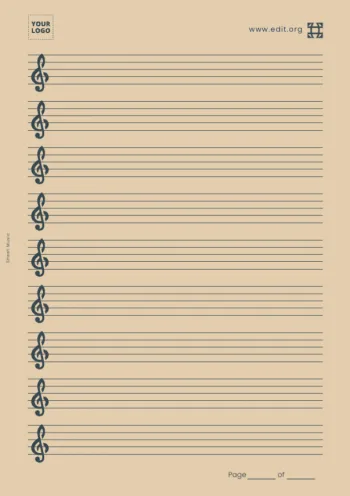 YOUR
LOGO
www.edit.org
Sheet Music
Page ______ of ______